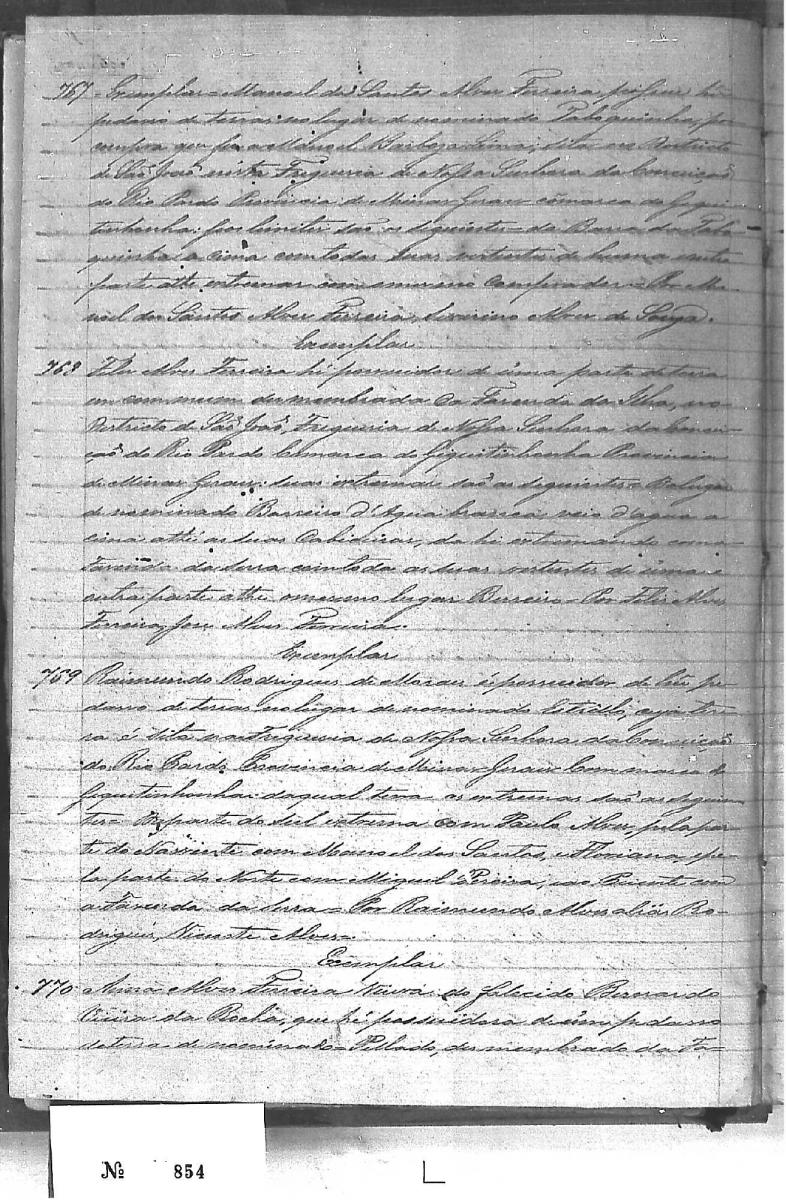 767 - Exemplar = Manoel dos Santos Alves Ferreira, possue hû
pedaço de terras no lugar de nominado
compra que fez a Manoel Barboza Lima, sita no Destricto
de São João nesta Freguezia de Nossa Senhora da Conceição
do Rio Pardo Provincia de Minas Geraes cômarca do Jiqui-
tinhonha: seos limites são os siguientes = da Barra da
a cima com todas suas vertentes de huma e outra
parte athe extremar com o mesmo comprador = Por Ma-
noel dos Santos Alves Ferreira, Severino Alves de Souza.
Exemplar
768 Felis Alves Ferreira hé possuidor de úma parte de terra
em commum desmembrada da Fazenda da Ilha, no
Destricto de São João, Freguezia de Nossa Senhora da Concei-
ção do Rio Pardo Comarca do Jiquitinhonha Provincia
de Minas Geraes: suas extremas são as seguintes =
de nominado Barreiro d'Agua branca, veio d'agua a
cima athé as suas Cabiceiras, da hi extremando com a
Fazenda da Serra com toda as suas vertentes de úma e
outra parte athe o mesmo lugar Barreiro = Por Felis Alves
Ferreira, Jose Alves Ferreira.
Exemplar
769 Raimundo Rodrigues de Moraes é possuidor de hû pe-
daço de terras no lugar de nominado cuja ter-
ra é sita na Freguezia de Nossa Senhora da Conceição
do Rio Pardo Provincia de Minas Geraes Commarca de
Jiquitinhonha: da qual terra as extremas são as seguin-
tes = Da parte do Sul extrema com Paulo Alves, pela par-
te do Nascente com Manoel dos Santos, e Floriana, e pe-
la parte do Norte com Miguel Pereira, e ao Poente com
a Fazenda da Serra = Por Raimundo Alves aliás Ro-
drigues, Vicente Alves =
Exemplar
770 Anna Alves Ferreira Viuva do falecido Bernardo
Vieira da Rocha, que hé possuidora de úm pedasso
de terra de nominado = Pellado, desmembrado da Fa-
Nº 854